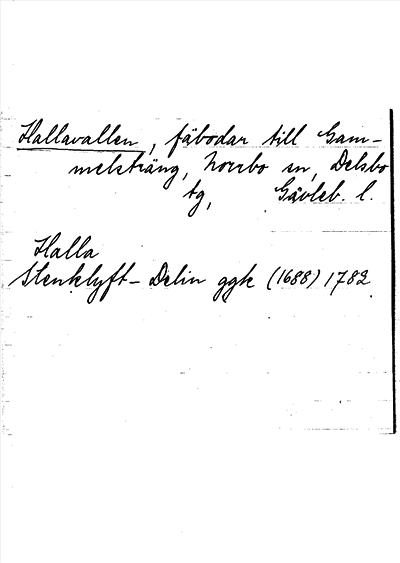 Hallavallen, fäbodar till Gam-
melsträng, Norrbo sn, Delsbo
tg, Gävleb. l.
Halla
Stenklyft - Delin ggk (1688) 1782